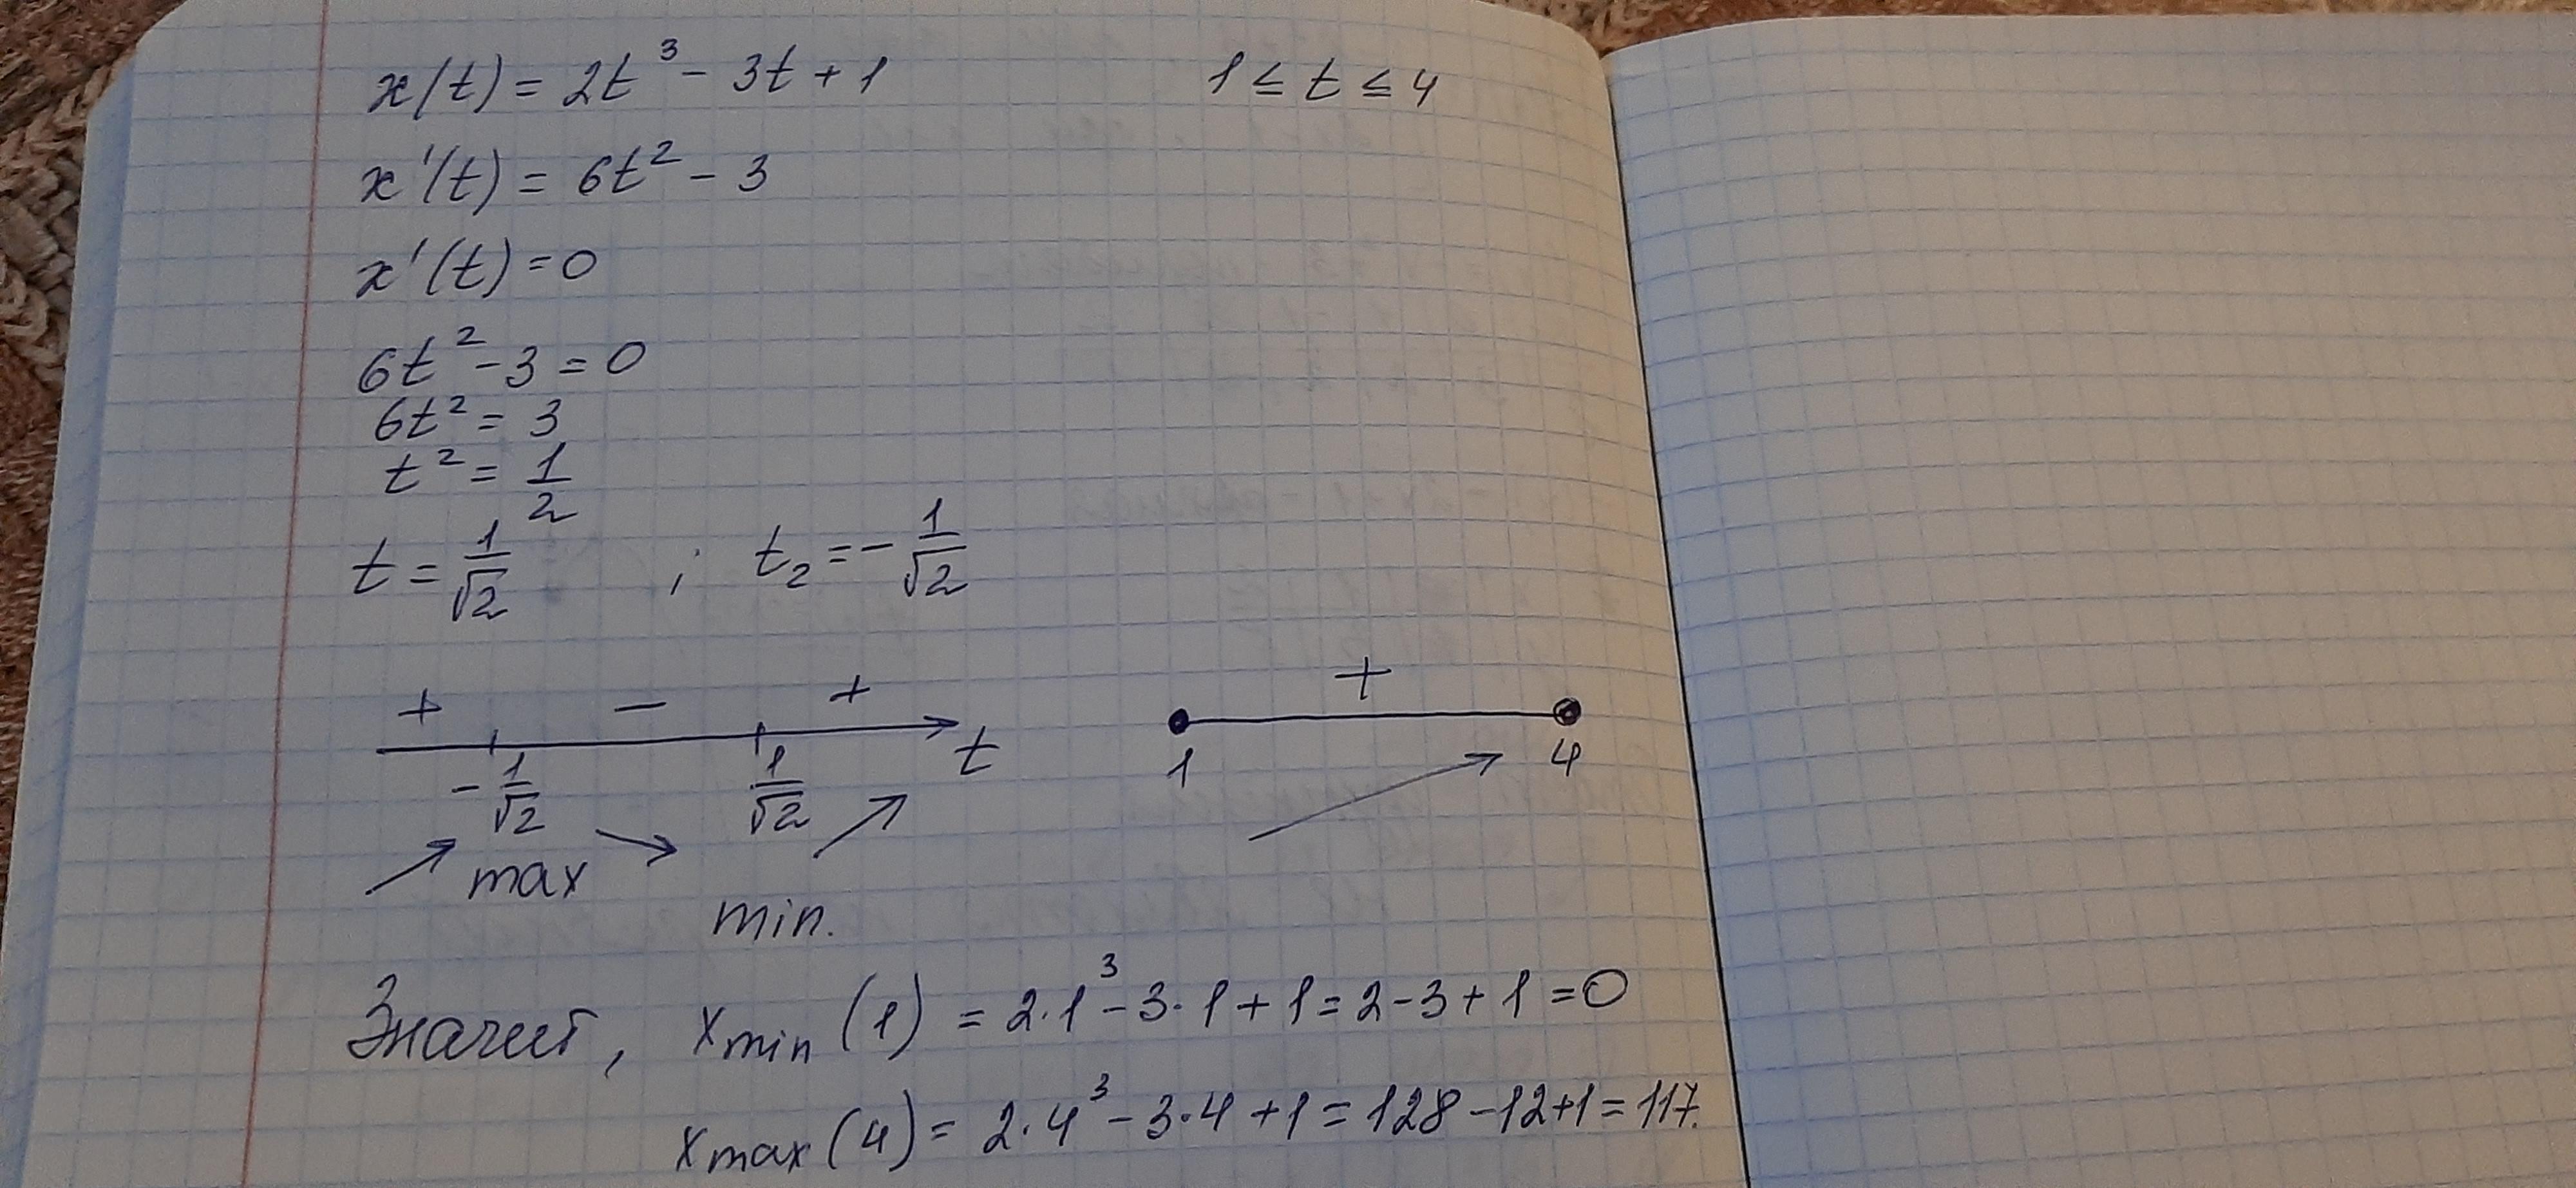 x(t) = 2t³ - 3t + 1 1 ≤ t ≤ 4
x'(t) = 6t² - 3
x'(t) = 0
6t² - 3 = 0
6t² = 3
t² = 1/2
t = 1/√2 ; t₂ = - 1/√2
+ - + +
- 1/√2 1/√2 t 1 4
max
min.
Значит, xmin (1) = 2·1³ - 3·1 + 1 = 2 - 3 + 1 = 0
xmax (4) = 2·4³ - 3·4 + 1 = 128 - 12 + 1 = 117.